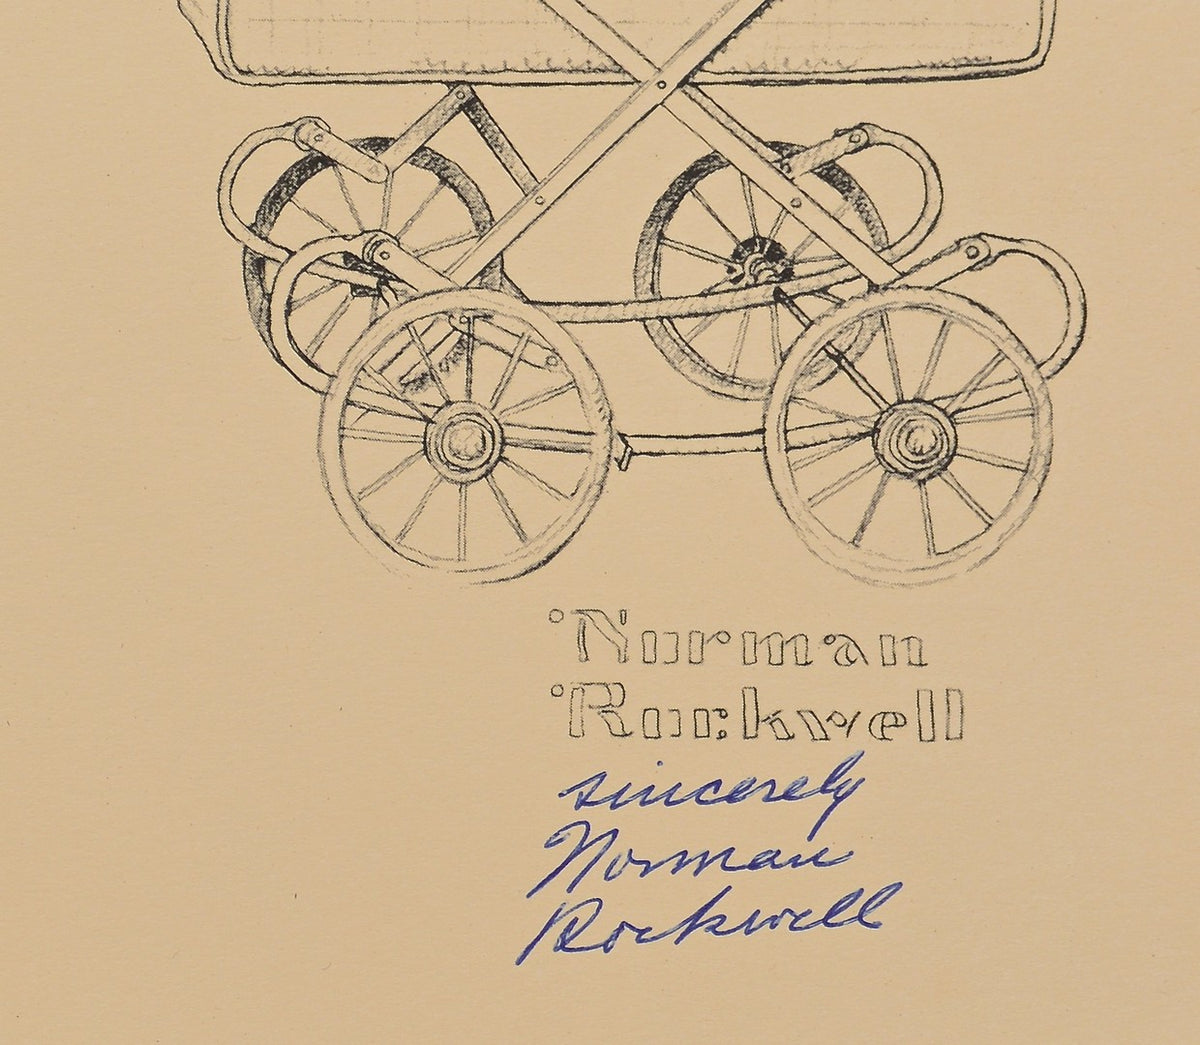 Norman
Rockwell
sincerely
Norman
Rockwell